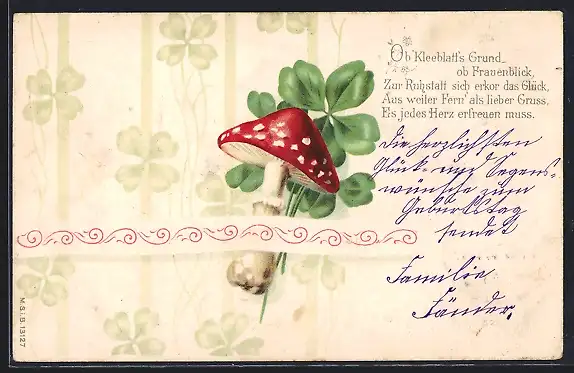 Ob Kleeblatt's Grund
ob Frauenblick,
Zur Ruhstatt sich erkor das Glück,
Aus weiter Fern' als lieber Gruss,
Es jedes Herz erfreuen muss.
Die herzlichsten
Glück- und Segens-
wünsche zum
Geburtstag
sendet
Familie
Fänder.
M.S.i.B. 13127